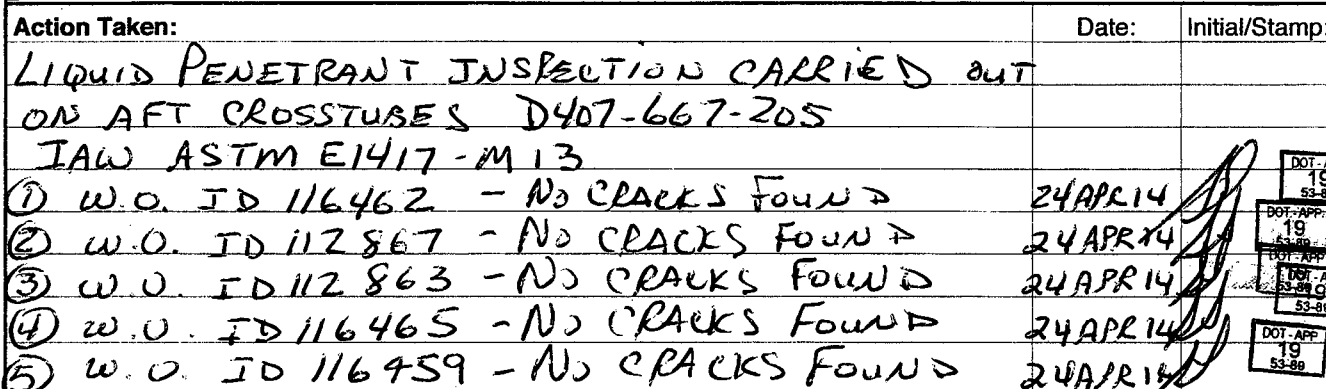 Action Taken: Date: Initial/Stamp:
LIQUID PENETRANT INSPECTION CARRIED OUT
ON AFT CROSSTUBES D407-667-205
IAW ASTM E1417-M13
① W.O. ID 116462 - NO CRACKS FOUND 24APR14 DOT-A 19 53-8
② W.O. ID 112867 - NO CRACKS FOUND 24APR14 DOT-APP. 19 53-89
③ W.O. ID 112863 - NO CRACKS FOUND 24APR14 DOT-APP
④ W.O. ID 116465 - NO CRACKS FOUND 24APR14 53-89
⑤ W.O. ID 116459 - NO CRACKS FOUND 24APR14 DOT-APP 19 53-89